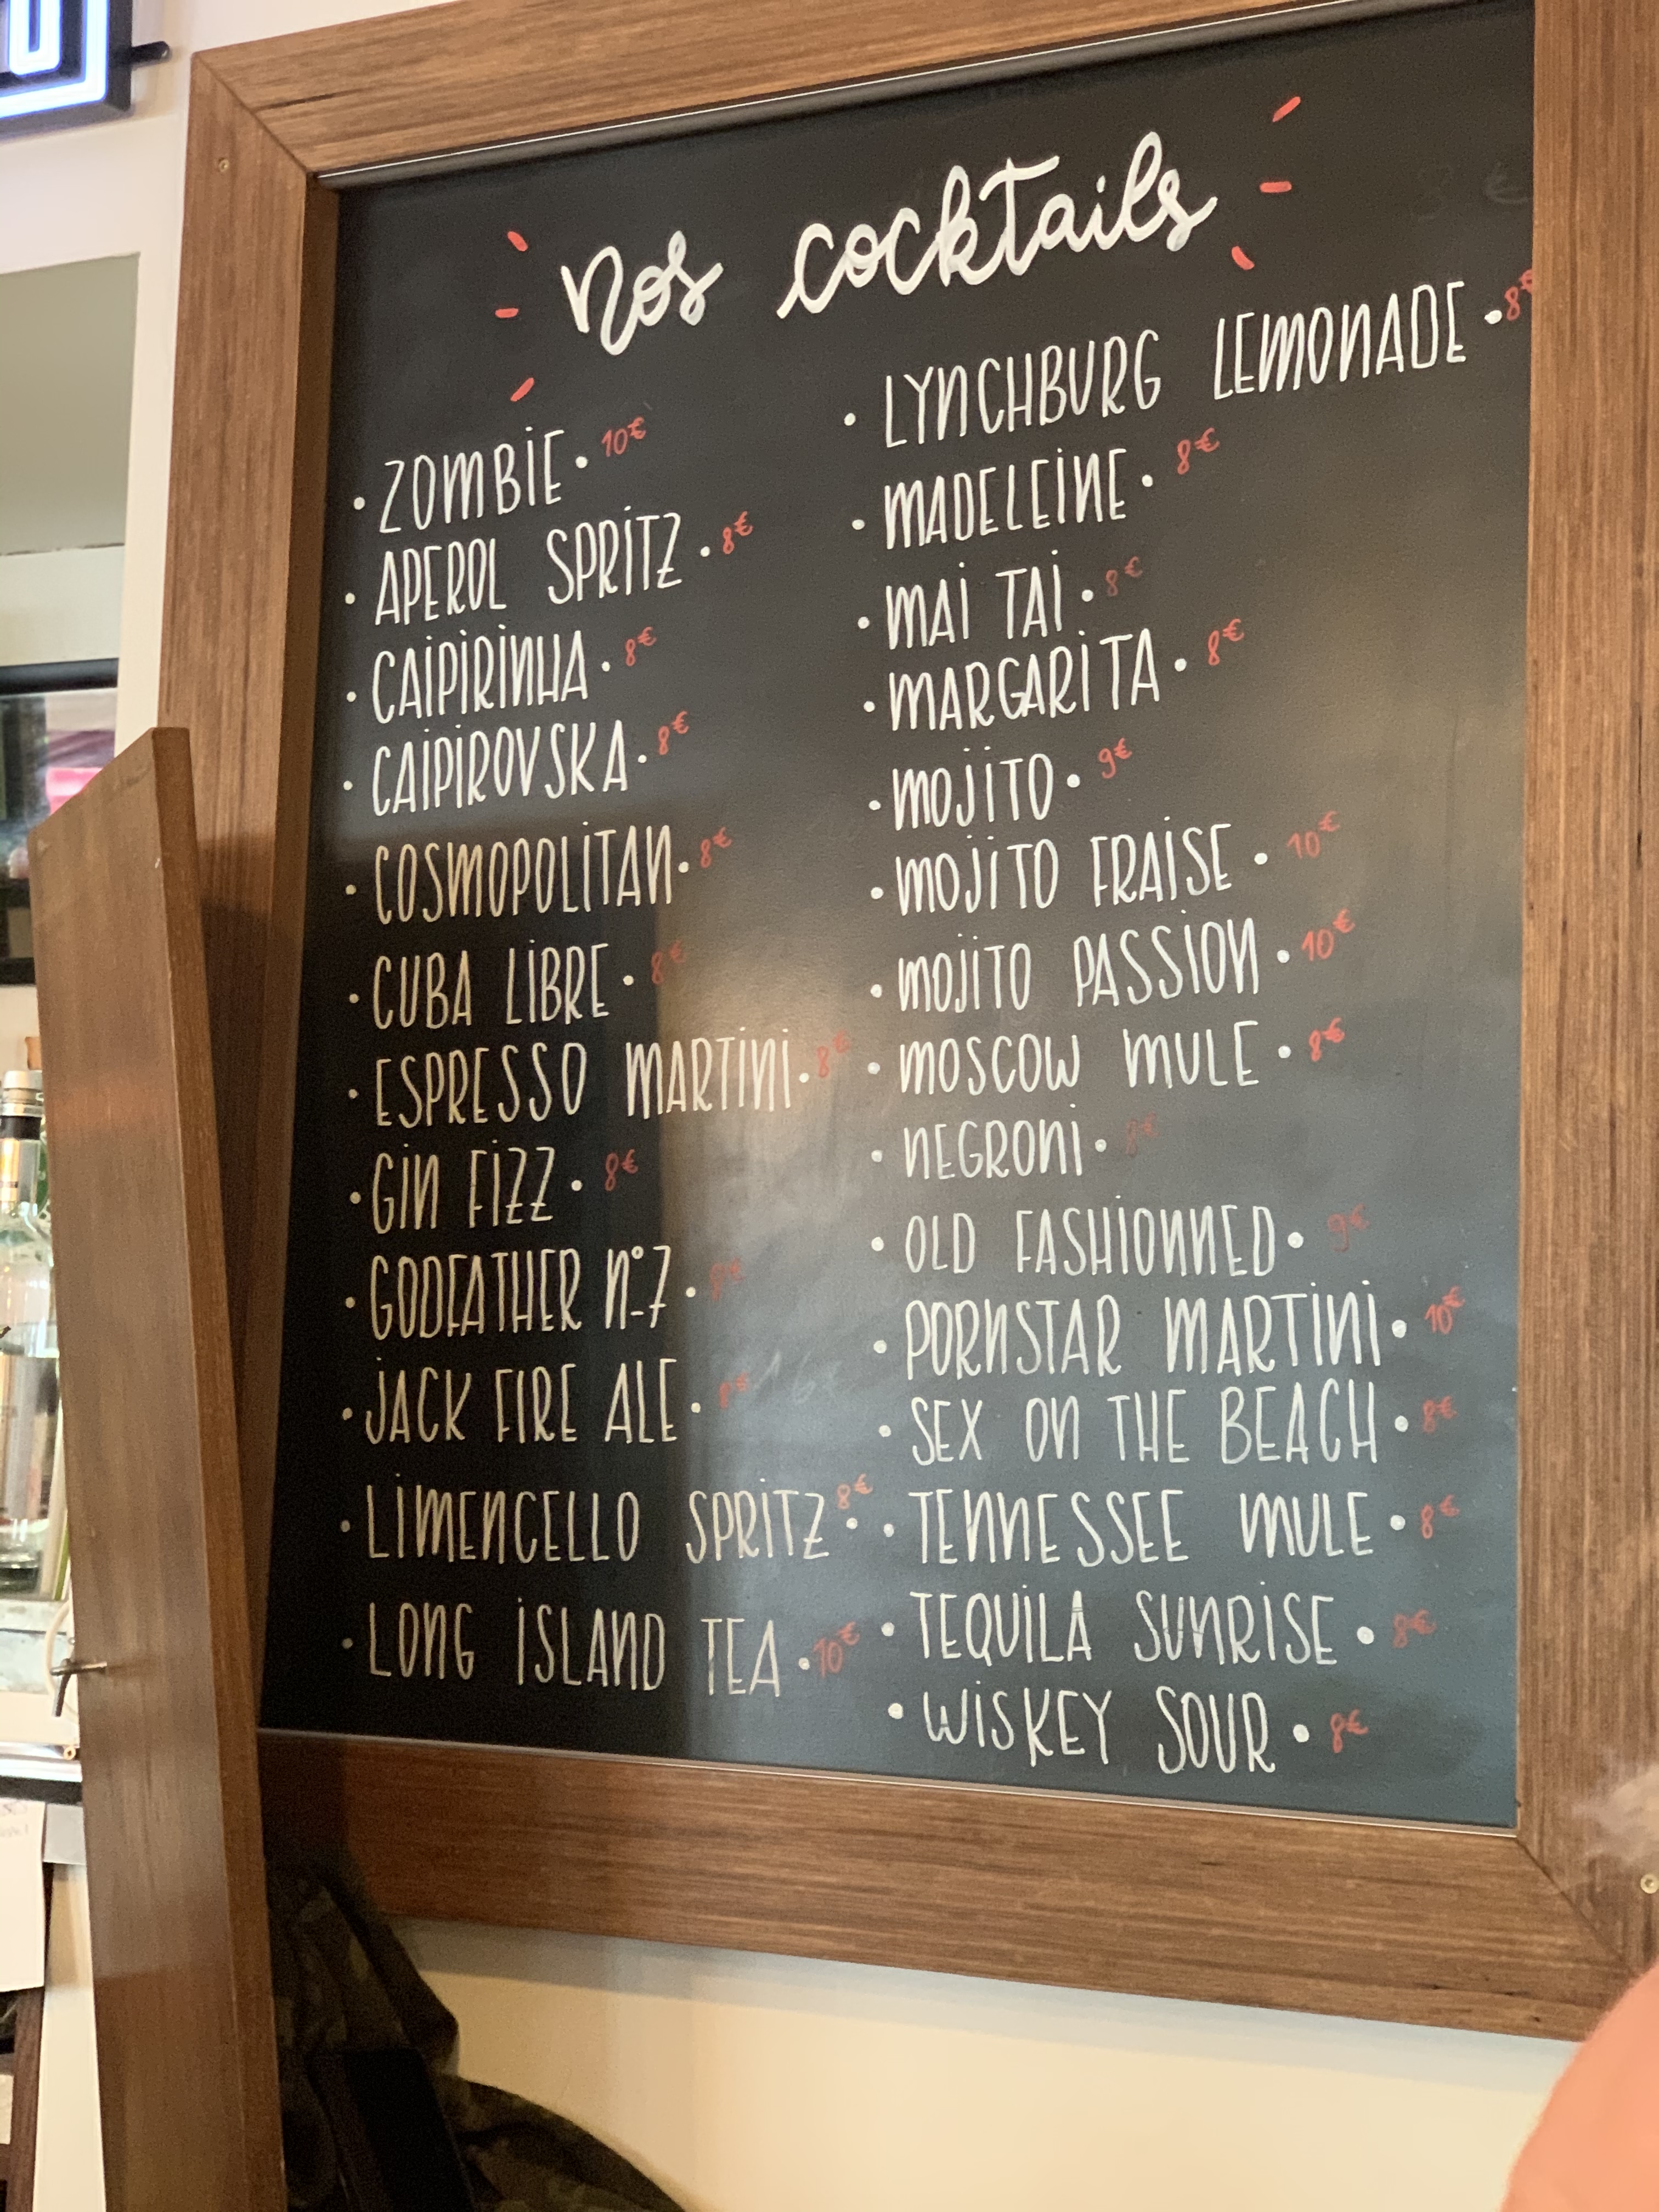 Nos cocktails
• ZOMBIE • 10€
• APEROL SPRITZ • 8€
• CAIPIRINHA • 8€
• CAIPIROVSKA • 8€
• COSMOPOLITAN • 8€
• CUBA LIBRE • 8€
• ESPRESSO MARTINI • 8€
• GIN FIZZ • 8€
• GODFATHER N°7 • 8€
• JACK FIRE ALE • 8€
• LIMENCELLO SPRITZ • 8€
• LONG ISLAND TEA • 10€
• LYNCHBURG LEMONADE • 8€
• MADELEINE • 8€
• MAI TAI • 8€
• MARGARITA • 8€
• MOJITO • 9€
• MOJITO FRAISE • 10€
• MOJITO PASSION • 10€
• MOSCOW MULE • 8€
• NEGRONI •
• OLD FASHIONNED • 9€
• PORNSTAR MARTINI • 10€
• SEX ON THE BEACH • 8€
• TENNESSEE MULE • 8€
• TEQUILA SUNRISE • 8€
• WISKEY SOUR • 8€